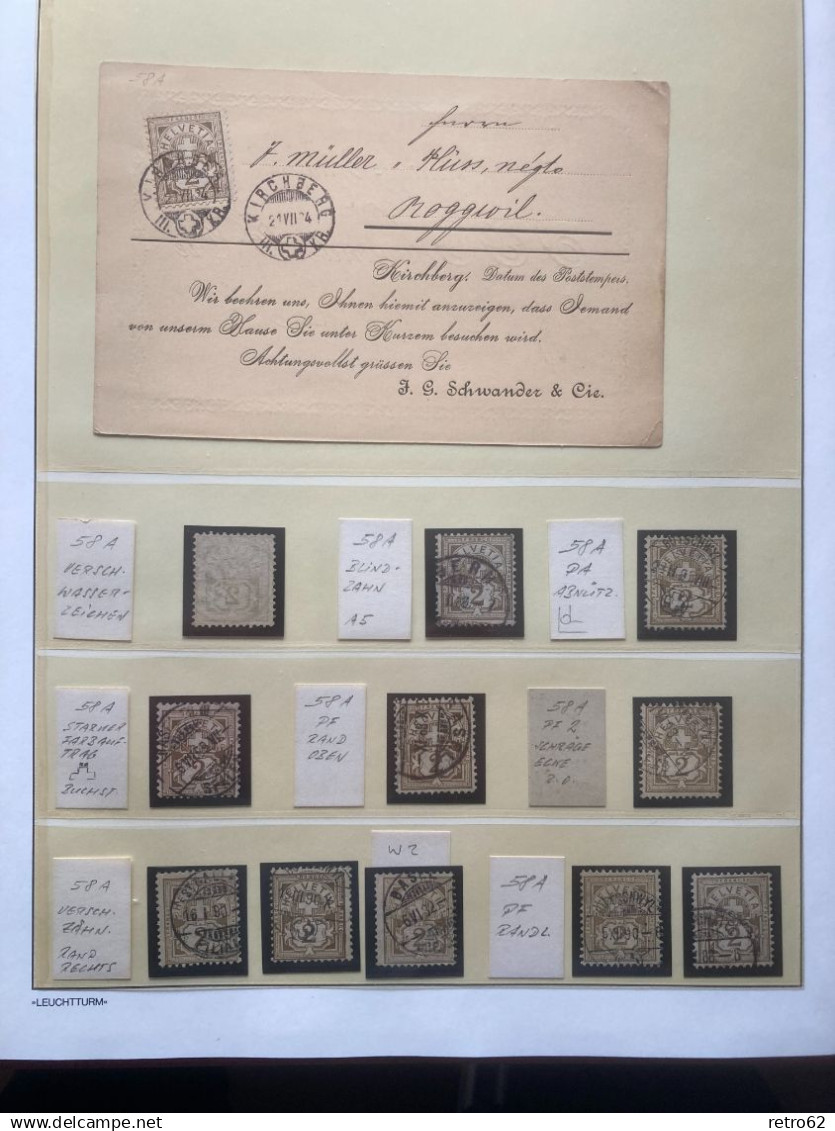 58 A
HELVETIA
2
KIRCHBERG
21 VII 94
III. KR.
Herrn
J. Müller
Roggwil.
Kirchberg, Datum des Poststempers.
Wir beehren uns, Ihnen hiemit anzuzeigen, dass Jemand
von unserm Hause Sie unter Kurzem besuchen wird.
Achtungsvollst grüssen Sie
J. G. Schwander & Cie.
58 A
VERSCH.
WASSER-
ZEICHEN
58 A
BLIND-
ZAHN
A5
58 A
PA
ABNÜTZ.
58 A
STARKER
FARBAUF-
TRAG
BUCHST.
58 A
PF
RAND
OBEN
58 A
PF 2
SCHRÄGE
ECKE
R.O.
58 A
VERSCH.
ZÄHN.
RAND
RECHTS
WZ
58 A
PF
RANDL.
»LEUCHTTURM«
www.delcampe.net
retro62